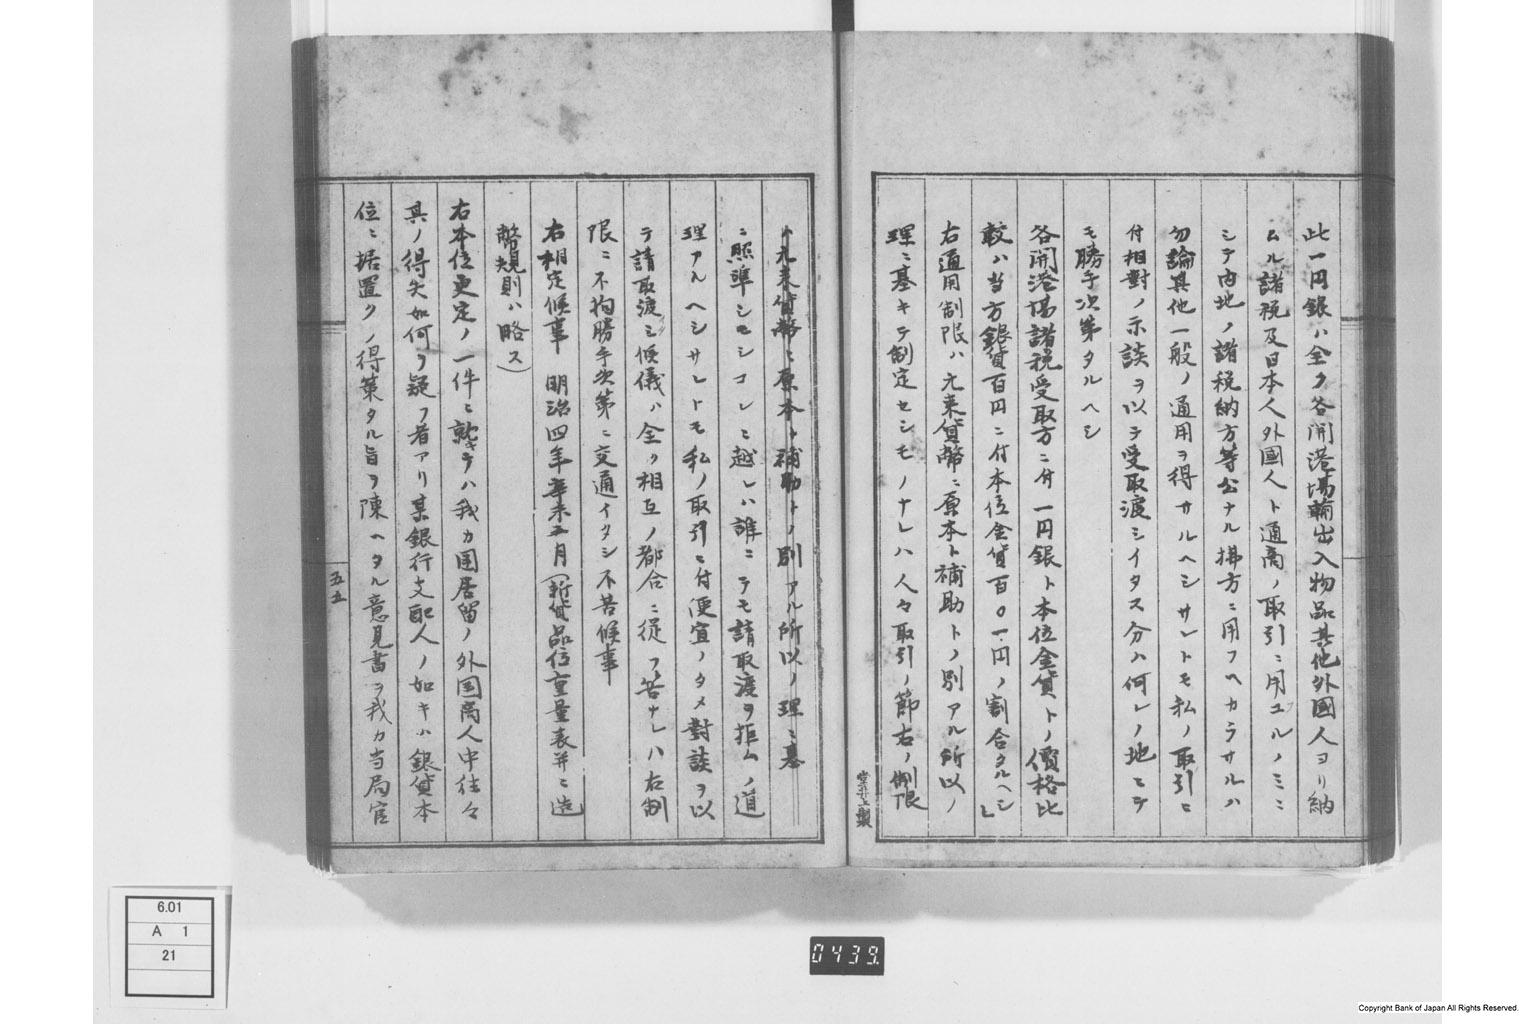 此一円銀ハ全ク各開港場輸出入物品其他外國人ヨリ納
ムル諸税及日本人外國人ト通商ノ取引ニ用ユルノミニ
シテ内地ノ諸税納方等公ナル拂方ニ用フヘカラサルハ
勿論其他一般ノ通用ヲ得サルヘシサレトモ私ノ取引ニ
付相對ノ示談ヲ以テ受取渡シイタス分ハ何レノ地ニテ
モ勝手次第タルヘシ
各開港場諸税受取方ニ付一円銀ト本位金貨トノ價格比
較ハ当方銀貨百円ニ付本位金貨百〇一円ノ割合タルヘシ」
右通用制限ハ元来貨幣ニ原本ト補助トノ別アル所以ノ
理ニ基キテ制定セシモノナレハ人々取引ノ節右ノ制限
ト元来貨幣ニ原本ト補助トノ別アル所以ノ理ニ基
ニ照準シモシコレニ越レハ誰ニテモ請取渡ヲ拒ムノ道
理アルヘシサレトモ私ノ取引ニ付便宜ノタメ對談ヲ以
テ請取渡シ候儀ハ全ク相互ノ都合ニ従フ筈ナレハ右制
限ニ不拘勝手次第ニ交通イタシ不苦候事
右相定候事 明治四年辛未五月(新貨品位重量表并ニ造
幣規則ハ略ス)
右本位更定ノ一件ニ就キテハ我カ国居留ノ外国商人中往々
其ノ得失如何ヲ疑フ者アリ某銀行支配人ノ如キハ銀貨本
位ニ据置クノ得策タル旨ヲ陳ヘタル意見書ヲ我カ当局官
五五
6.01
A 1
21
0439.
Copyright Bank of Japan All Rights Reserved.